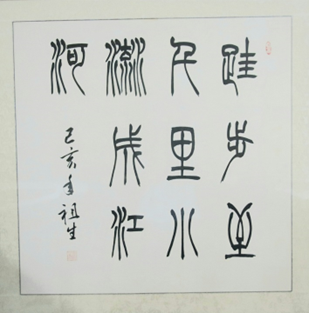 跬步至
千里小
流成江
河
己亥年祖生